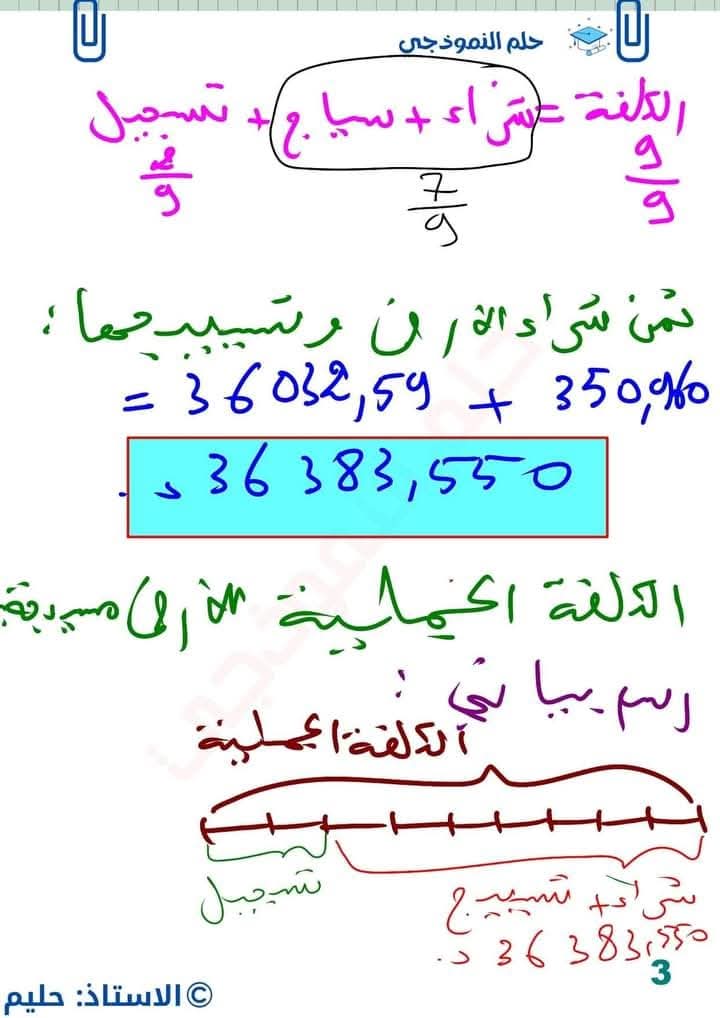 حلم النموذجي
الكلفة = شراء + سياج + تسجيل
9/9 7/9 2/9
ثمن شراء الأرض وتسييجها :
= 36032,59 + 350,960
36 383,550 د.
الكلفة الجملية للأرض مسيجة
رسم بياني :
الكلفة الجملية
تسجيل
شراء + تسييج
36 383,550 د.
3
© الاستاذ: حليم